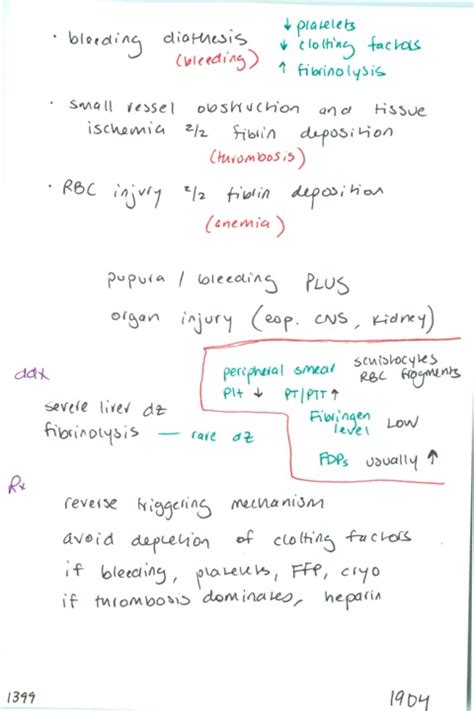 · bleeding diathesis ↓ platelets
(bleeding) ↓ clotting factors
↑ fibrinolysis
· small vessel obstruction and tissue
ischemia 2/2 fibrin deposition
(thrombosis)
· RBC injury 2/2 fibrin deposition
(anemia)
pupura / bleeding PLUS
organ injury (esp. CNS, kidney)
ddx
peripheral smear schistocytes
RBC fragments
Plt ↓ PT/PTT ↑
severe liver dz
fibrinolysis — rare dz
Fibringen
level LOW
FDPs usually ↑
Rx
reverse triggering mechanism
avoid depletion of clotting factors
if bleeding, platelets, FFP, cryo
if thrombosis dominates, heparin
1399 1904